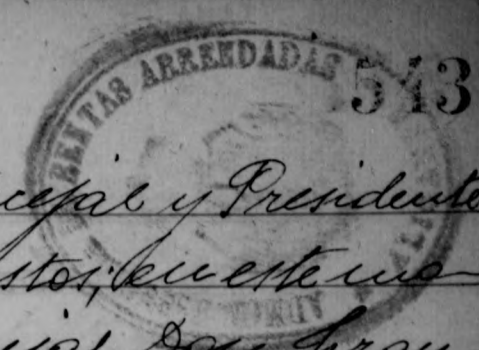 RENTAS ARRENDADAS
543
cejal y Presidente
stos; en este mo-
Don Fran